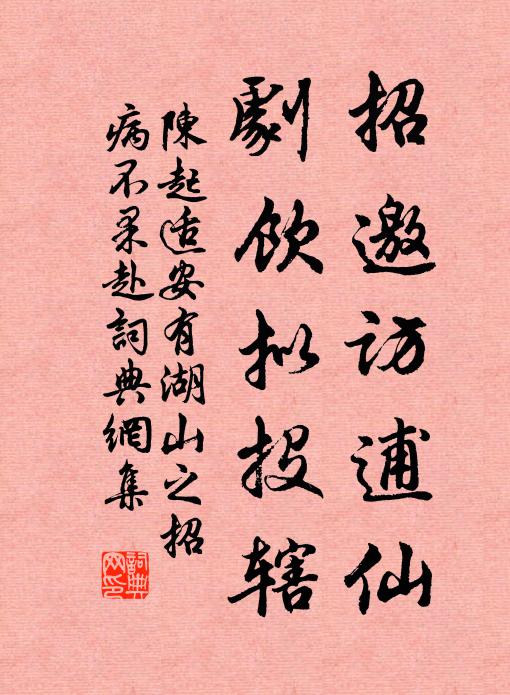 招邀訪逋仙
劇飲拟投辖
陳起适安有湖山之招
病不果赴詞典網集
詞典网印